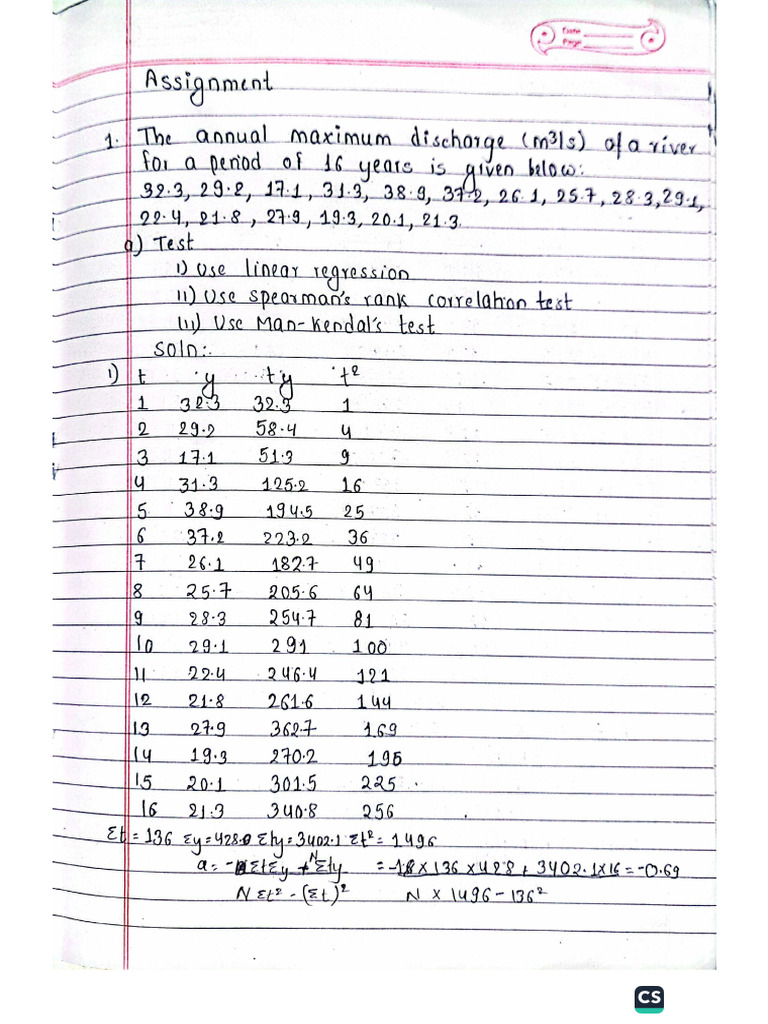 Date
Page
Assignment
1. The annual maximum discharge (m3/s) of a river
for a period of 16 years is given below:
32.3, 29.2, 17.1, 31.3, 38.9, 37.2, 26.1, 25.7, 28.3, 29.1,
22.4, 21.8, 27.9, 19.3, 20.1, 21.3.
a) Test
i) Use linear regression
ii) Use spearman's rank correlation test
iii) Use Man-Kendal's test
Soln:.
i) t y ty t²
1 32.3 32.3 1
2 29.2 58.4 4
3 17.1 51.3 9
4 31.3 125.2 16
5 38.9 194.5 25
6 37.2 223.2 36
7 26.1 182.7 49
8 25.7 205.6 64
9 28.3 254.7 81
10 29.1 291 100
11 22.4 246.4 121
12 21.8 261.6 144
13 27.9 362.7 169
14 19.3 270.2 196
15 20.1 301.5 225
16 21.3 340.8 256
Σt = 136 Σy=428.0 Σty=3402.1 Σt²=1496
a = -ΣtΣy + NΣty = -136 × 428 + 3402.1×16 = -0.69
NΣt² - (Σt)² N × 1496 - 136²
CS